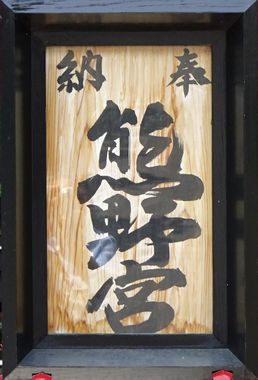 奉納
熊野宮